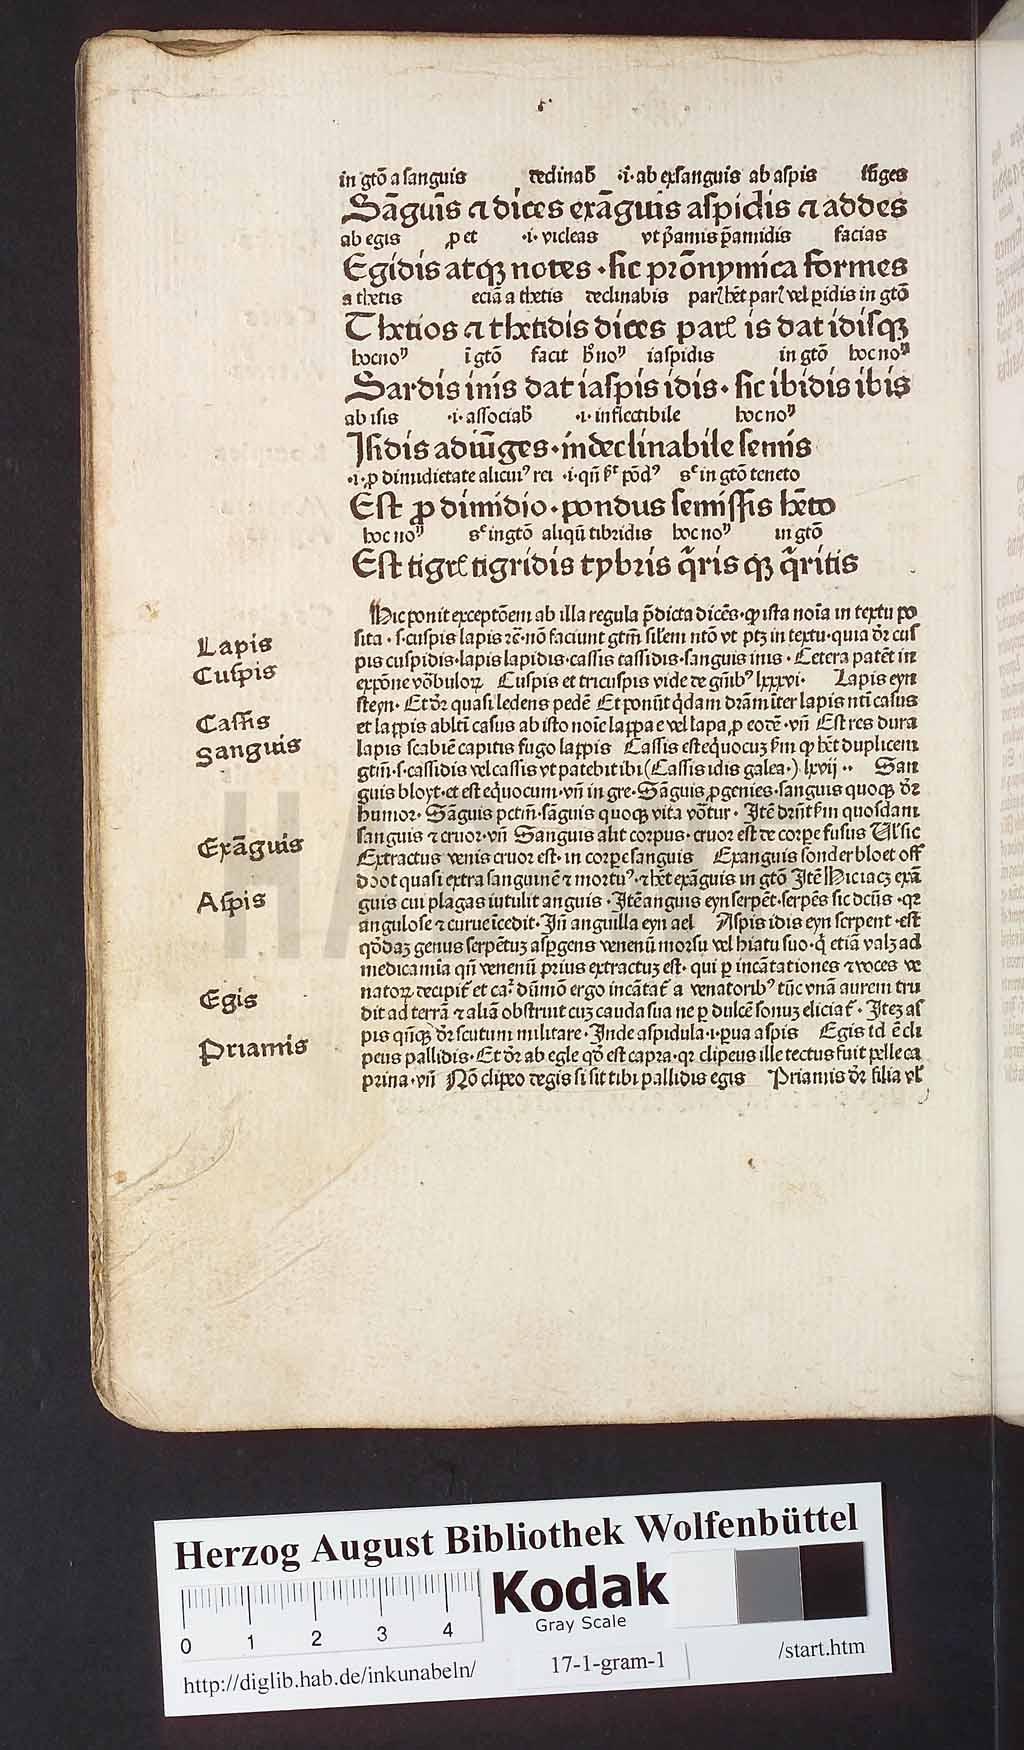 in gtō a sanguis declinab̄ ·i· ab exsanguis ab aspis
Sāguīs ⁊ dices exāguis aspidis ⁊ addes
ab egis ꝓ et ·i· videas vt p̄amis p̄amidis facias
Egidis atqꝫ notes · sic prōnymica formes
a thetis eciā a thetis declinabis in gtō
Thetios ⁊ thetidis dices is dat idisqꝫ
hoc noꝰ ī gtō facit iaspidis in gtō hoc noꝰ
Sardis inis dat iaspis idis · sic ibidis ibis
ab isis ·i· associab̄ ·i· inflectibile hoc noꝰ
Isidis adiūges · indeclinabile semis
·i· ꝓ dimidietate alicuiꝰ rei in gtō teneto
Est ꝓ dimidio · pondus semissis hēto
hoc noꝰ in gtō aliqū tibridis hoc noꝰ in gtō
Est tigridis tybris
Hic ponit exceptōem ab illa regula p̄dicta dicēs · ꝙ ista noīa in textu po
Lapis
sita · s · cuspis lapis ⁊c̄ · nō faciunt gtm̄ silem ntō vt ptꝫ in textu · quia dr̄ cus
Cuspis
pis cuspidis · lapis lapidis · cassis cassidis · sanguis inis · Cetera patēt in
expōne vōbuloꝝ Cuspis et tricuspis vide de gn̄ibꝰ lxxxvi · Lapis eyn
steyn · Et dr̄ quasi ledens pedē Et ponūt q̄dam dram̄ īter lapis ntī casus
Cassis
et lappis abltī casus ab isto noīe lappa e vel lapa, ꝓ eodē · vn̄ Est res dura
Sanguis
lapis scabiē capitis fugo lappis Cassis est eq̄uocuꝫ ẜm ꝙ hēt duplicem
gtm̄ · s · cassidis vel cassis vt patebit ibi (Cassis idis galea ·) lxvij ·· San
guis bloyt · et est eq̄uocum · vn̄ in gre · Sāguis ꝓgenies · sanguis quoqꝫ dr̄
humor · Sāguis pctm̄ · sāguis quoqꝫ vita vōtur · Itē drn̄t ẜm quosdam
sanguis ⁊ cruor · vn̄ Sanguis alit corpus · cruor est de corpe fusus Ul sic
Exāguis
Extractus venis cruor est · in corpe sanguis Exanguis sonder bloet off
doot quasi extra sanguinē ⁊ mortuꝰ · ⁊ hēt exāguis in gtō Itē Hic iacꝫ exā
Aspis
guis cui plagas intulit anguis · Itē anguis eyn serpēt · serpēs sic dcūs · qꝛ
angulose ⁊ curue īcedit · Iñ anguilla eyn ael Aspis idis eyn serpent · est
qōdaꝫ genus serpētuꝫ aspgens venenū morsu vel hiatu suo · q̄ etiā valꝫ ad
medicamīa qn̄ venenū prius extractuꝫ est · qui p incātationes ⁊ voces ve
Egis
natoꝝ decipit̄ et ergo incātat̄ a venatoribꝰ tūc vnā aurem tru
dit ad terrā ⁊ aliā obstruit cuꝫ cauda sua ne p dulcē sonuꝫ eliciat̄ · Iteꝫ as
pis qn̄qꝫ dr̄ scutum militare · Inde aspidula · i · pua aspis Egis id ē cli
Priamis
peus pallidis · Et dr̄ ab egle qō est capra · qꝛ clipeus ille tectus fuit pelle ca
prina · vn̄ Nō clipeo degis si sit tibi pallidis egis Priamis dr̄ filia vl̄
HAB
Herzog August Bibliothek Wolfenbüttel
Kodak
Gray Scale
0 1 2 3 4
http://diglib.hab.de/inkunabeln/ 17-1-gram-1 /start.htm